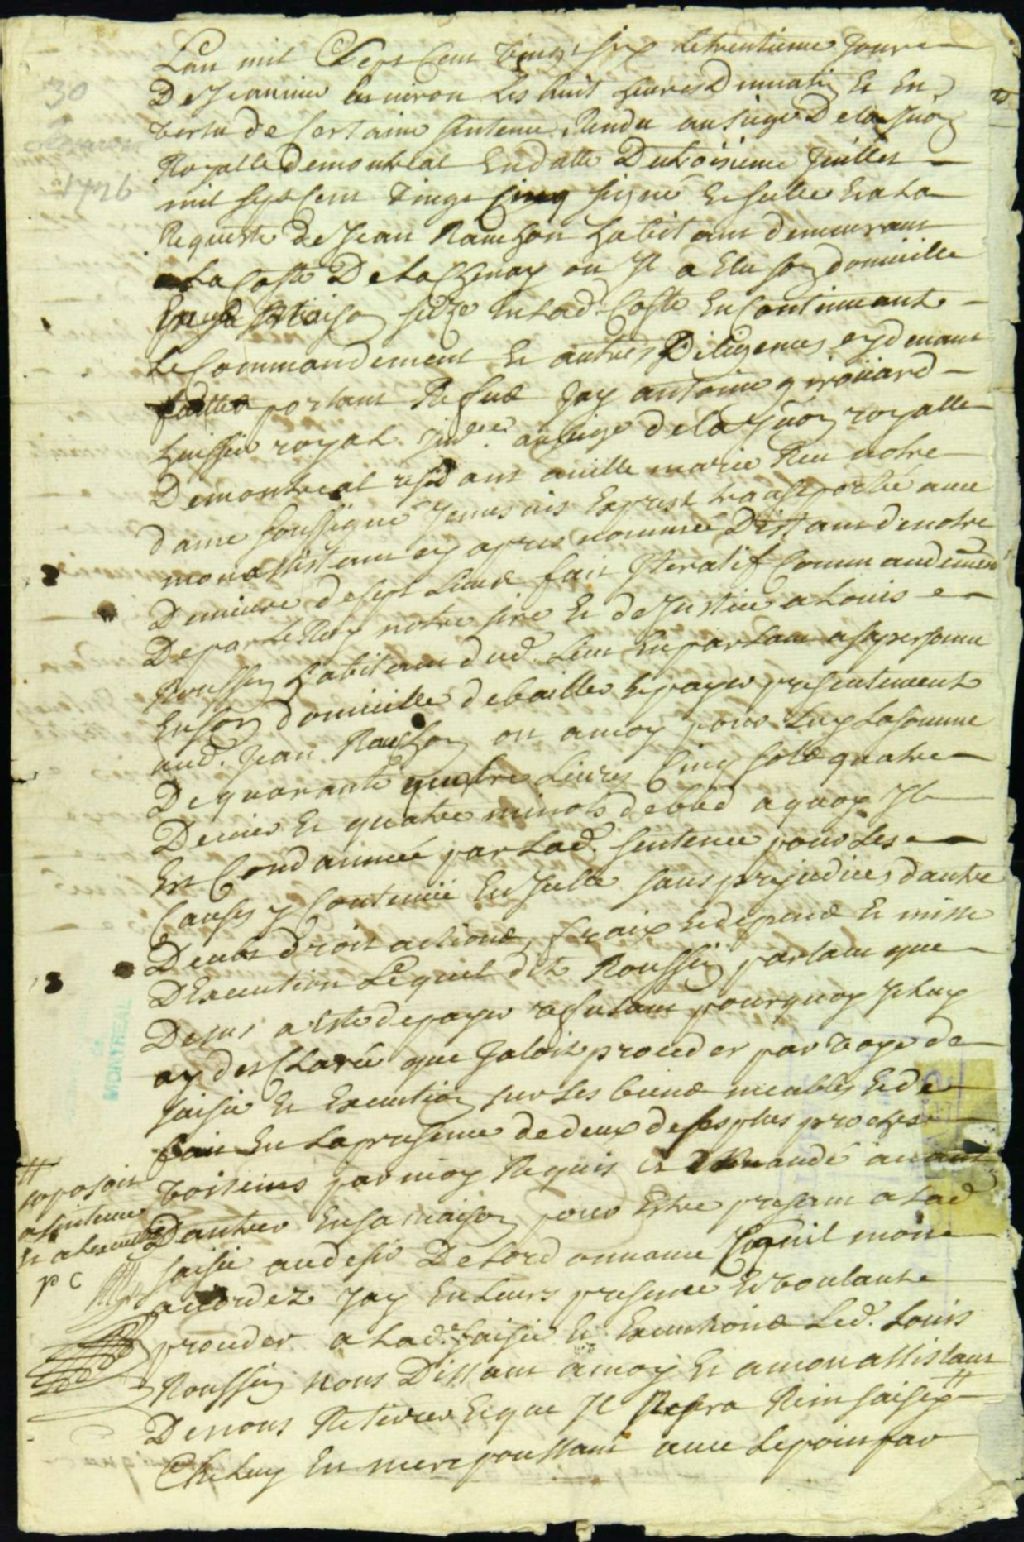 Lan mil Sept Cent vingt six le trentieme Jour
De Jeanvier Environ les huit heures Du matin Et En
vertu de Certaine Sentence Rendu au Siege De la Juon
Royalle de montreal En datte Du troisieme Juillet
mil Sept Cent vingt Cinq signé Et scellé Et a la
Requeste de Jean habitant demeurant
a La Coste De Lachenay ou Il a Elu son domicille
En sa Maison size En lad. Coste En Continuant
Le Commandement Et autres Diligences cy devant
faittes portant Refus Jay antoine
huissier royal au siege de la Juon royalle
De montreal residant a ville marie Rue notre
dame soussigné Je me suis Expres transporté avec
mon assistant cy apres nommé Distant de notre
Demeure de sept Lieues fait Iteratif Commandement
De par le Roy notre sire Et de Justice a Louis
Roussin habitant dud. Lieu En parlant a sa personne
En son domicille de bailler Et payer presentement
aud. Jean ou a moy pour Luy La somme
De quarante quatre Livres Cinq sols quatre
Denier Et quatre minots de bled a quoy Il
Est Condamné par Lad. sentence pour Les
Causes y Contenue En Icelle sans prejudice dautre
Deubs droits actions, fraix Et depens Et mise
DExecution Lequel dit Roussin parlant que
Desus a Esté de payer refusant pourquoy Je Luy
ay desClaré que Jalois proceder par voye de
saisie Et Execution sur ses biens meubles Et de
fait En La presence de deux de ses plus proches
voisins par moy Requis Et Mandé
Dentrer En sa maison pour Estre present a Lad
saisie au desir De Lordonnance Ce quil mont
accordez Jay En Leurs presence Et voulant
proceder a Lad. saisie Et Executions Led. Louis
Roussin nous Disant a moy Et a mon assistant
De nous Retirer Et que Il Rien saisy
Ché Luy En me repoussant avec Le poin
30
1726
soposoit
a sentence
Et a Lexecution
p c
MONTREAL